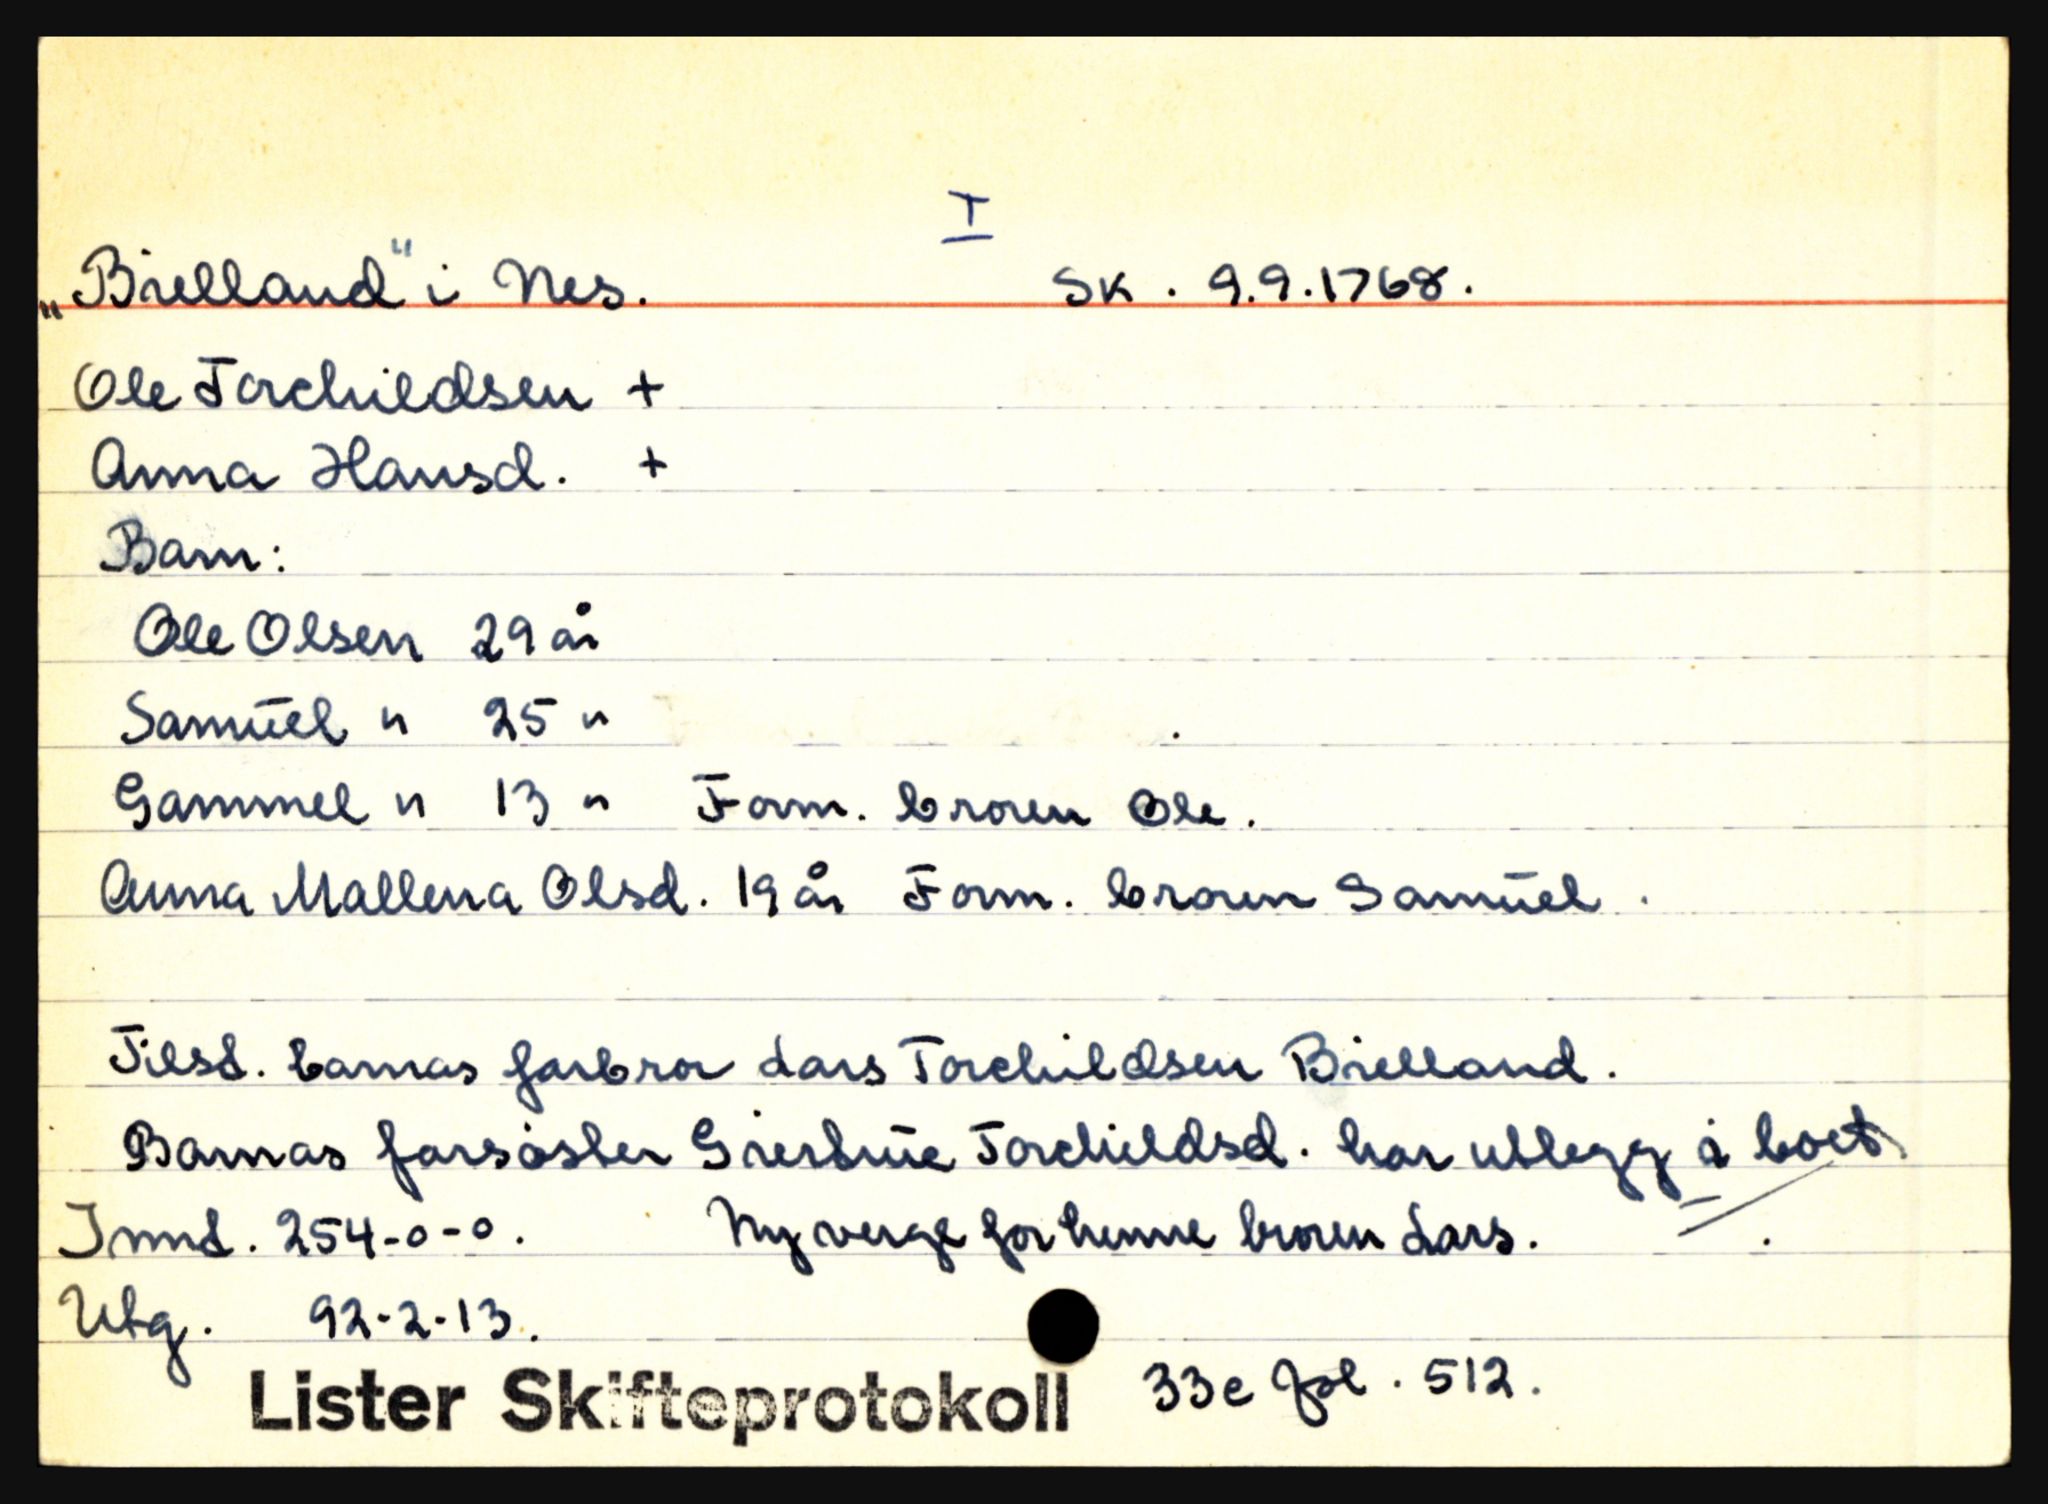 I
"Bielland" i Nes. Sk. 9.9.1768.
Ole Torchildsen +
Anna Hansd. +
Barn:
Ole Olsen 29 år
Samuel " 25 "
Gammel " 13 " Form. broren Ole.
Anna Mallena Olsd. 19 år Form. broren Samuel.
Tilsd. barnas farbror Lars Torchildsen Bielland.
Barnas farsøster Giertrue Torchildsd. har utlegg i boet.
Innt. 254-0-0. Ny verge for henne broren Lars.
Utg. 92-2-13.
Lister Skifteprotokoll 33c fol. 512.